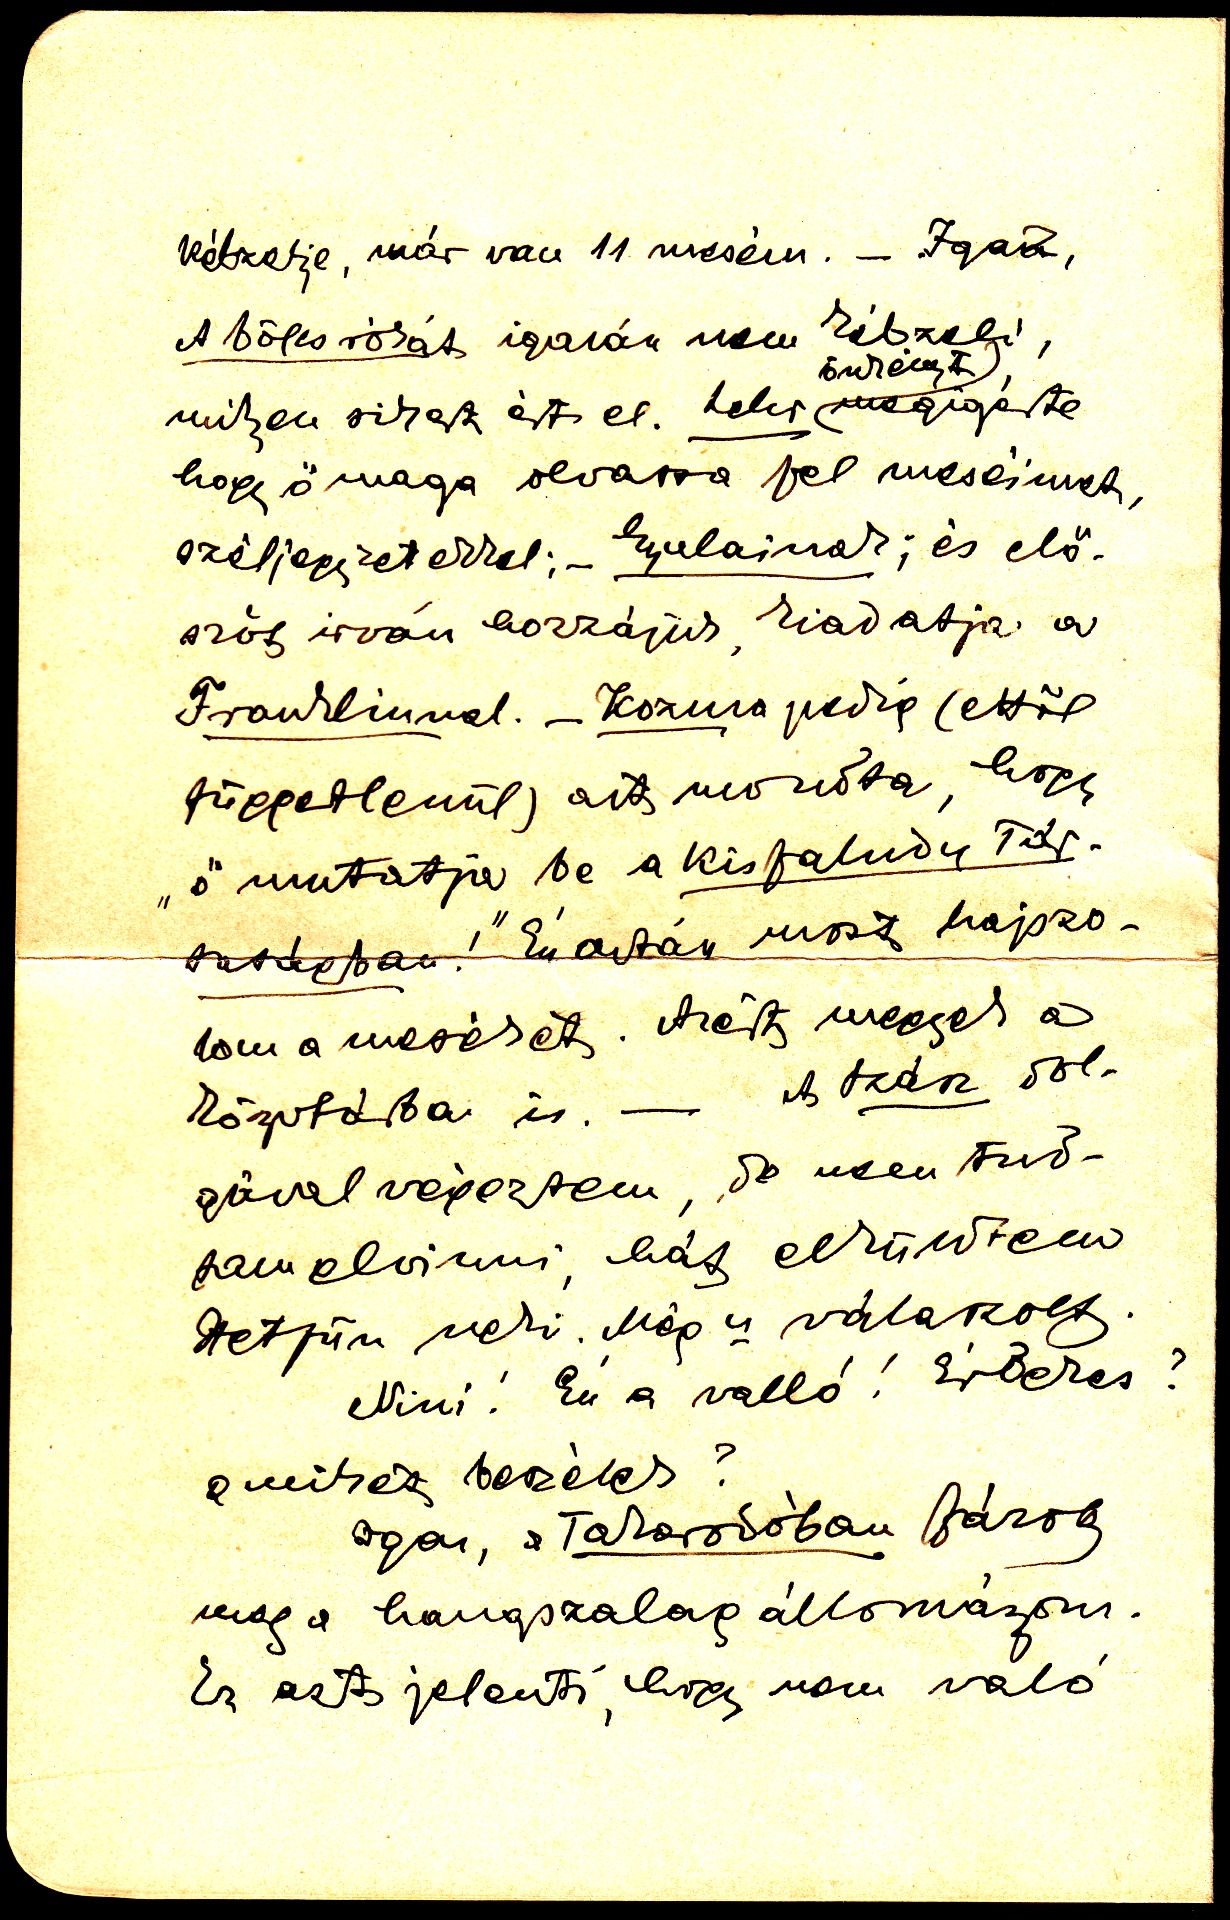 Képzelje, már van 11 mesém. – Igaz,
A bölcs rókát igazán nem képzeli,
milyen sikert ért el. Lehr (önként) megigérte
hogy ő maga olvassa fel meséimet,
széljegyzetekkel; – Gyulainak; és elő-
ször irván hozzájuk, kiadatja a
Franklinnal. – Kozma pedig (ettől
függetlenül) azt mondta, hogy
„ő mutatja be a Kisfaludy Tár-
saságban!" Én aztán most hajszo-
lom a meséket. Azért megyek a
Képtárba is. — A száz dol-
gával végeztem, de nem tud-
tam elvinni, hát elküldtem
Hétfőn neki. Még n válaszolt.
Nini! Én a valló! Érdekes?
amiket beszélek?
Igaz, a Takarodóban fárog
meg a hangszalag állományom.
Ez azt jelenti, hogy nem való